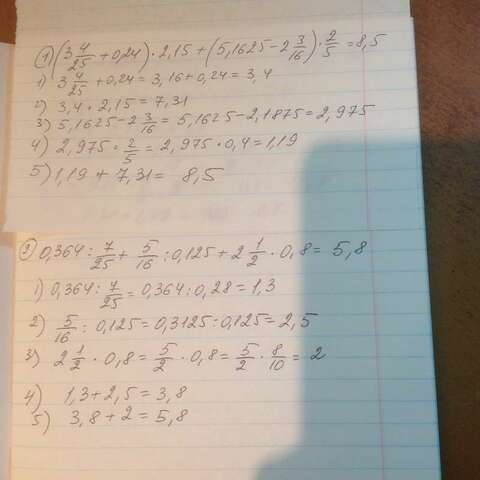 1) (3 4/25 + 0,24) · 2,15 + (5,1625 - 2 3/16) · 2/5 = 8,5
1) 3 4/25 + 0,24 = 3,16 + 0,24 = 3,4
2) 3,4 · 2,15 = 7,31
3) 5,1625 - 2 3/16 = 5,1625 - 2,1875 = 2,975
4) 2,975 · 2/5 = 2,975 · 0,4 = 1,19
5) 1,19 + 7,31 = 8,5
2) 0,364 : 7/25 + 5/16 : 0,125 + 2 1/2 · 0,8 = 5,8
1) 0,364 : 7/25 = 0,364 : 0,28 = 1,3
2) 5/16 : 0,125 = 0,3125 : 0,125 = 2,5
3) 2 1/2 · 0,8 = 5/2 · 0,8 = 5/2 · 8/10 = 2
4) 1,3 + 2,5 = 3,8
5) 3,8 + 2 = 5,8